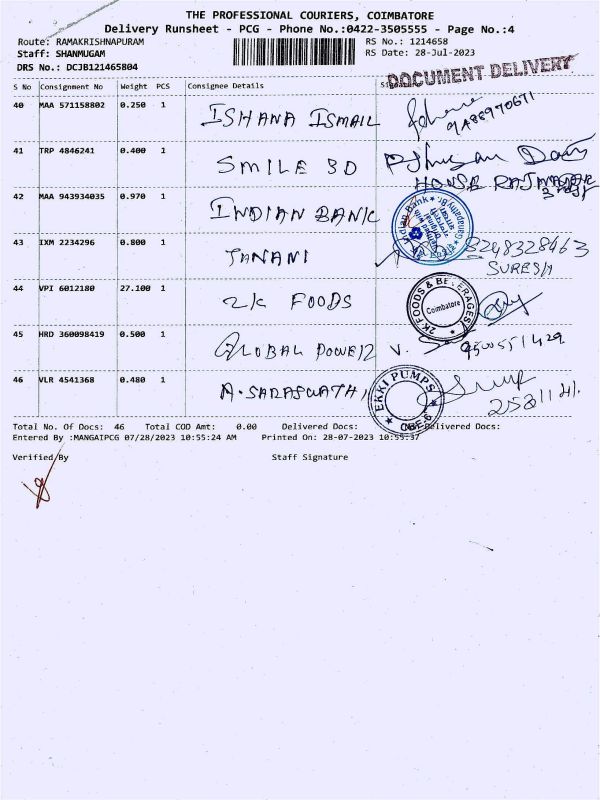 THE PROFESSIONAL COURIERS, COIMBATORE
Delivery Runsheet - PCG - Phone No.:0422-3505555 - Page No.:4
Route: RAMAKRISHNAPURAM RS No.: 1214658
Staff: SHANMUGAM RS Date: 28-Jul-2023
DRS No.: DCJB121465804
DOCUMENT DELIVERY
S No Consignment No Weight PCS Consignee Details
40 MAA 571158802 0.250 1 ISHANA ISMAIL
41 TRP 4846241 0.400 1 SMILE 3D
42 MAA 943934035 0.970 1 INDIAN BANK
Indian Bank
43 IXM 2234296 0.800 1 JANANI
SURESH
44 VPI 6012180 27.100 1 2K FOODS
2K FOODS & BEVERAGES Coimbatore
45 HRD 360098419 0.500 1 GLOBAL POWER V. 9500551429
46 VLR 4541368 0.480 1 A. SARASWATHI
EKKI PUMPS CBE-6
Total No. Of Docs: 46 Total COD Amt: 0.00 Delivered Docs: Delivered Docs:
Entered By :MANGAIPCG 07/28/2023 10:55:24 AM Printed On: 28-07-2023 10:55:37
Verified By Staff Signature